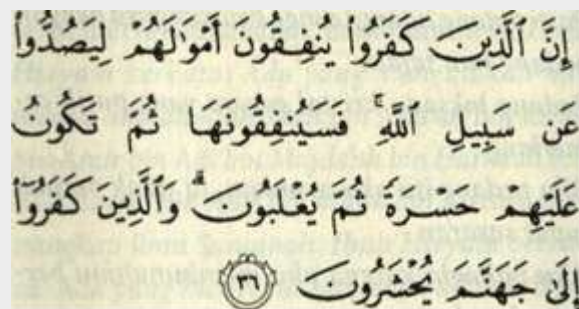 إِنَّ ٱلَّذِينَ كَفَرُوا۟ يُنفِقُونَ أَمْوَٰلَهُمْ لِيَصُدُّوا۟
عَن سَبِيلِ ٱللَّهِ ۚ فَسَيُنفِقُونَهَا ثُمَّ تَكُونُ
عَلَيْهِمْ حَسْرَةً ثُمَّ يُغْلَبُونَ ۗ وَٱلَّذِينَ كَفَرُوٓا۟
إِلَىٰ جَهَنَّمَ يُحْشَرُونَ ٣٦